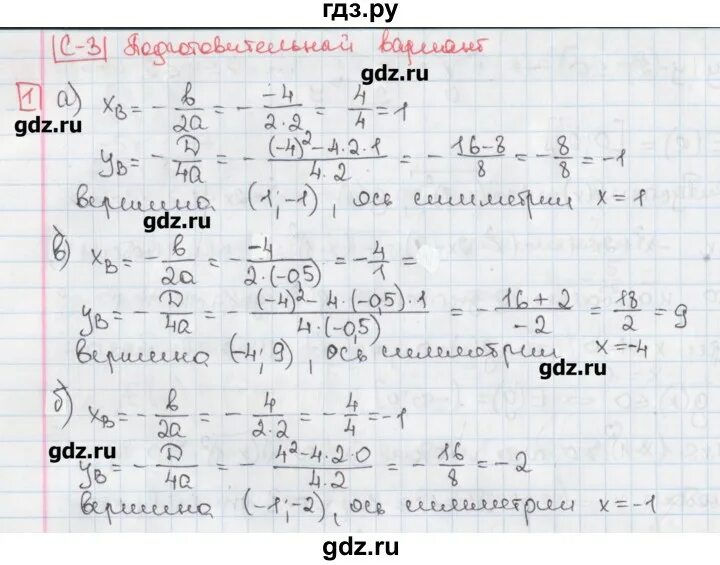 гдз.ру
С-3 Подготовительный вариант
gdz.ru
1 а) x_B = -b/2a = - -4/2·2 = 4/4 = 1
gdz.ru
y_B = -D/4a = - (-4)²-4·2·1/4·2 = - 16-8/8 = -8/8 = -1
вершина (1;-1), ось симметрии x = 1
gdz.ru
в) x_B = -b/2a = - -4/2·(-0,5) = -4/1 =
y_B = -D/4a = - (-4)²-4·(-0,5)·1/4·(-0,5) = - 16+2/-2 = 18/2 = 9
вершина (-4; 9), ось симметрии x = -4
gdz.ru
б) x_B = -b/2a = - 4/2·2 = -4/4 = -1
gdz.ru
y_B = -D/4a = - 4²-4·2·0/4·2 = - 16/8 = -2
вершина (-1;-2), ось симметрии x = -1
gdz.ru
gdz.ru